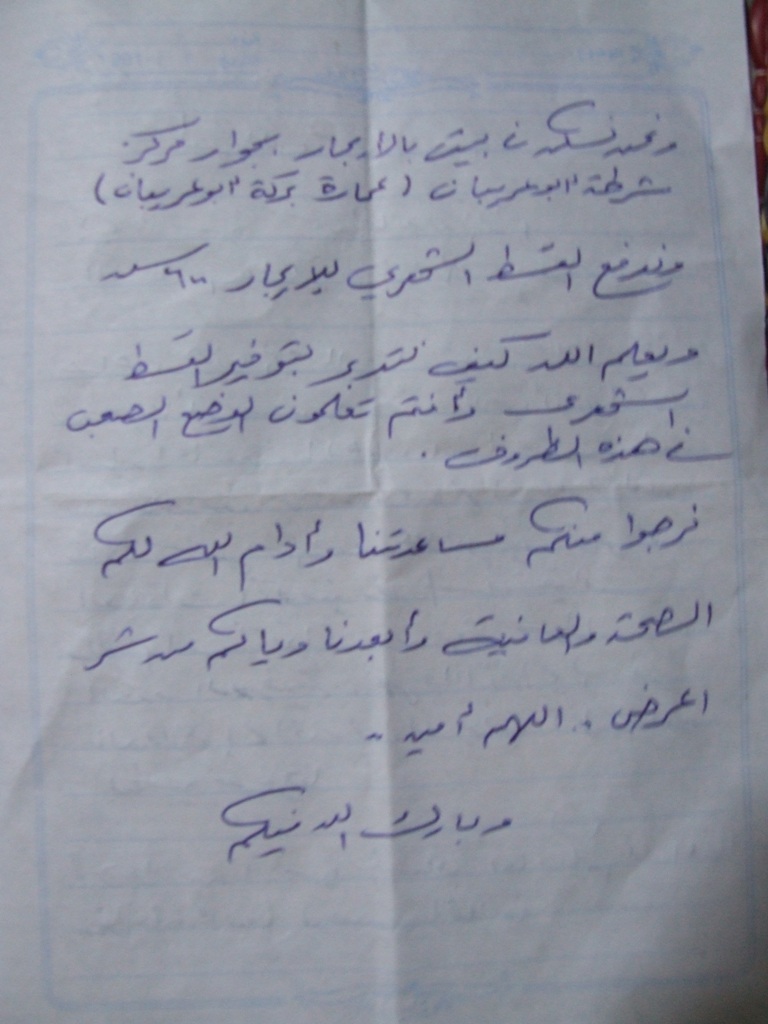 ونحن نسكن في بيت بالايجار بجوار مركز
شرطة ابوعريبان (عمارة بركة ابوعريبان)
وندفع القسط الشهري للايجار ٦٠٠
ويعلم الله كيف نتدبر بتوفير القسط
الشهري وأنتم تعلمون الوضع الصعب
في هذه الظروف .
نرجوا منكم مساعدتنا وأدام الله لكم
الصحة والعافية وأبعدنا وياكم من شر
المرض .. اللهم أمين ..
وبارك الله فيكم